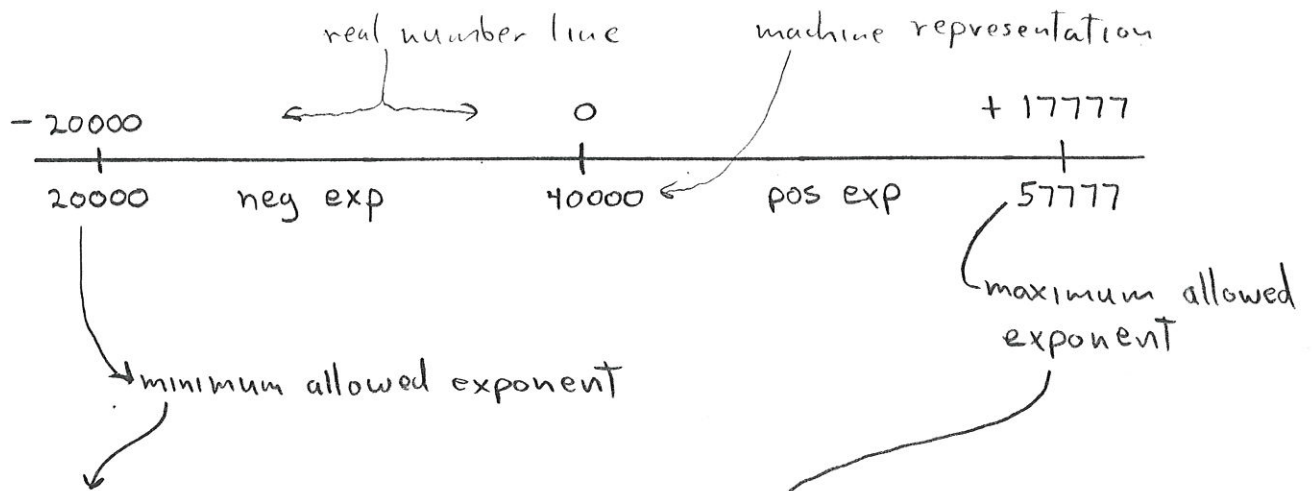 real number line machine representation
- 20000 0 + 17777
20000 neg exp 40000 pos exp 57777
maximum allowed
exponent
minimum allowed exponent